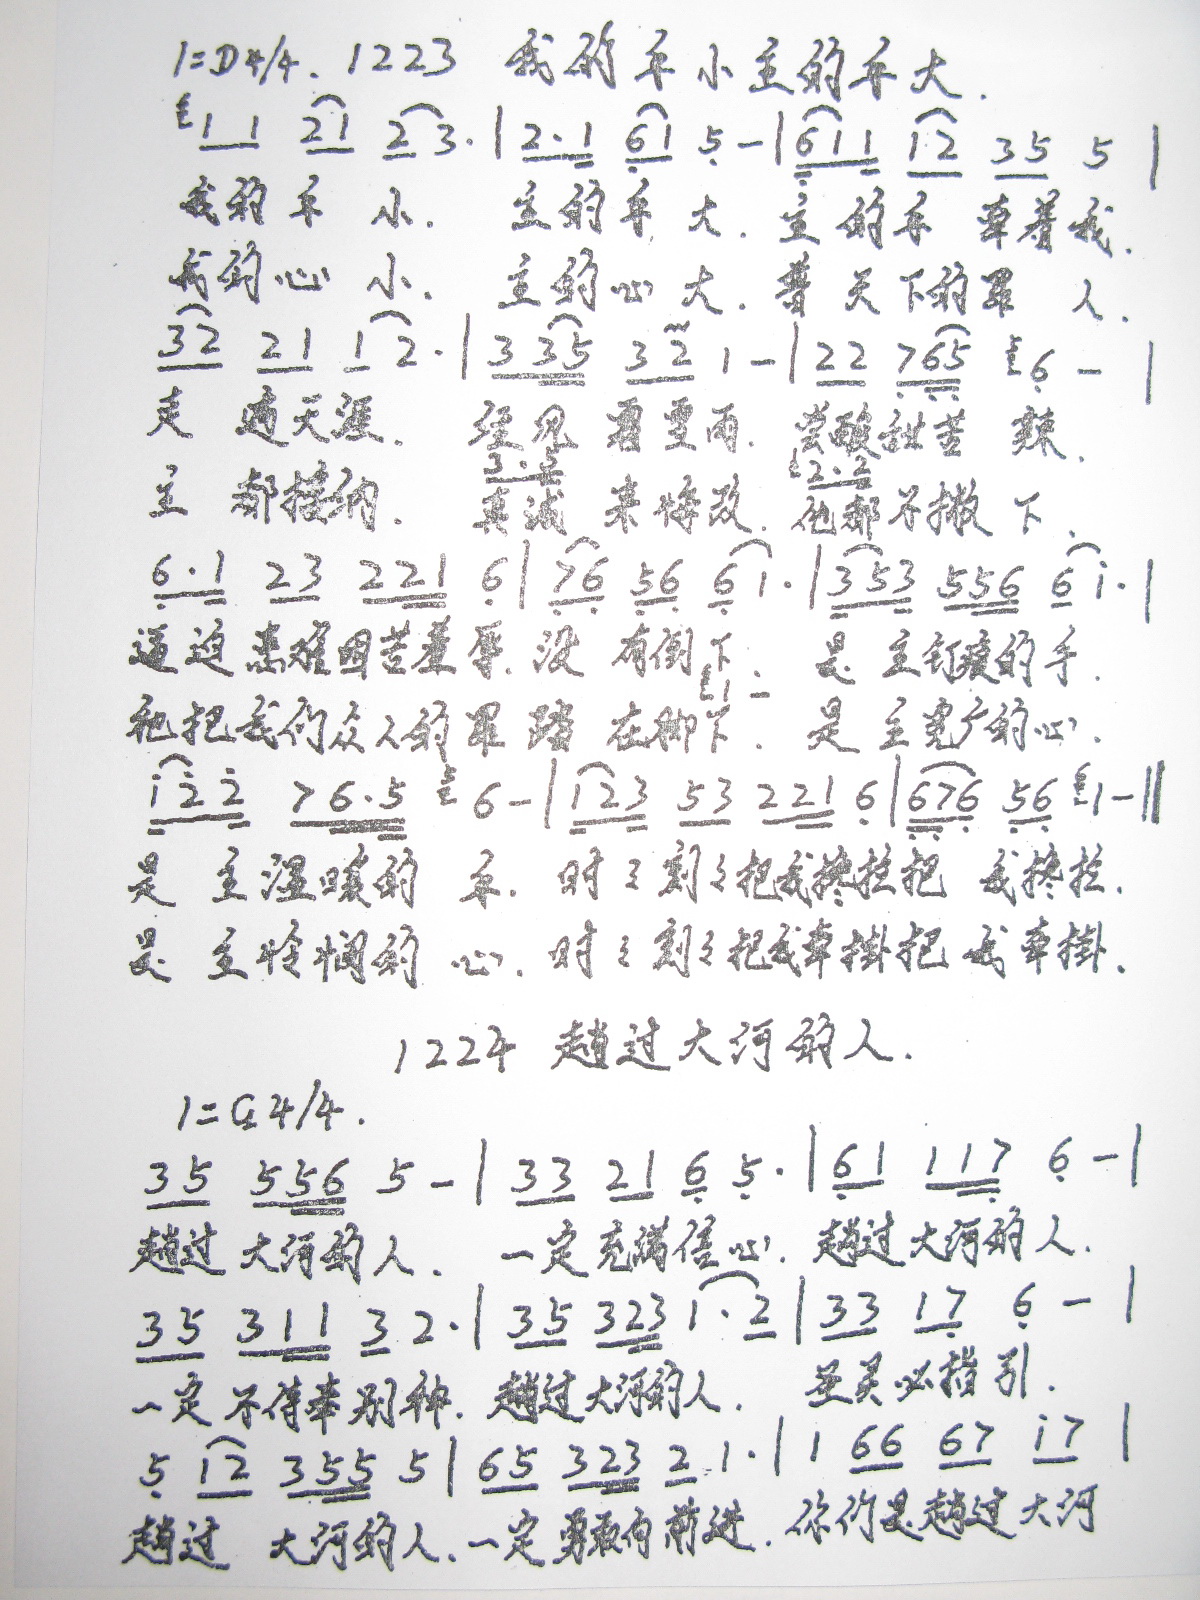 1=D4/4. 1223 我的手小主的手大.
1 1 2 1 2 3. | 2.1 61 5 - | 611 12 35 5 |
我的手小. 主的手大. 主的手牵着我.
我的心小. 主的心大. 普天下的罪人.
32 21 1 2. | 3 35 3 2 1 - | 22 765 6 - |
走遍天涯. 经风霜雪雨. 尝酸甜苦辣.
3.5 2.2
主都接纳. 真诚来悔改. 他都不撇下.
6.1 23 221 6 | 76 56 6 1. | 353 556 6 i. |
逼迫患难困苦羞辱. 没有倒下. 是主钉痕的手.
1 -
祂把我们众人的罪踏在脚下. 是主宽广的心.
i22 76.5 6 - | 123 53 221 6 | 676 56 1 - ||
是主温暖的手. 时々刻々把我搀拉把我搀拉.
是主怜悯的心. 时々刻々把我牵掛把我牵掛.
1224 趟过大河的人.
1=G4/4.
35 556 5 - | 33 21 6 5. | 61 117 6 - |
趟过大河的人. 一定充满信心. 趟过大河的人.
35 311 3 2. | 35 323 1.2 | 33 17 6 - |
一定不信奉别神. 趟过大河的人. 圣灵必指引.
5 12 355 5 | 65 323 2 1. | 1 66 67 i7 |
趟过大河的人. 一定勇敢向前进. 你们是趟过大河